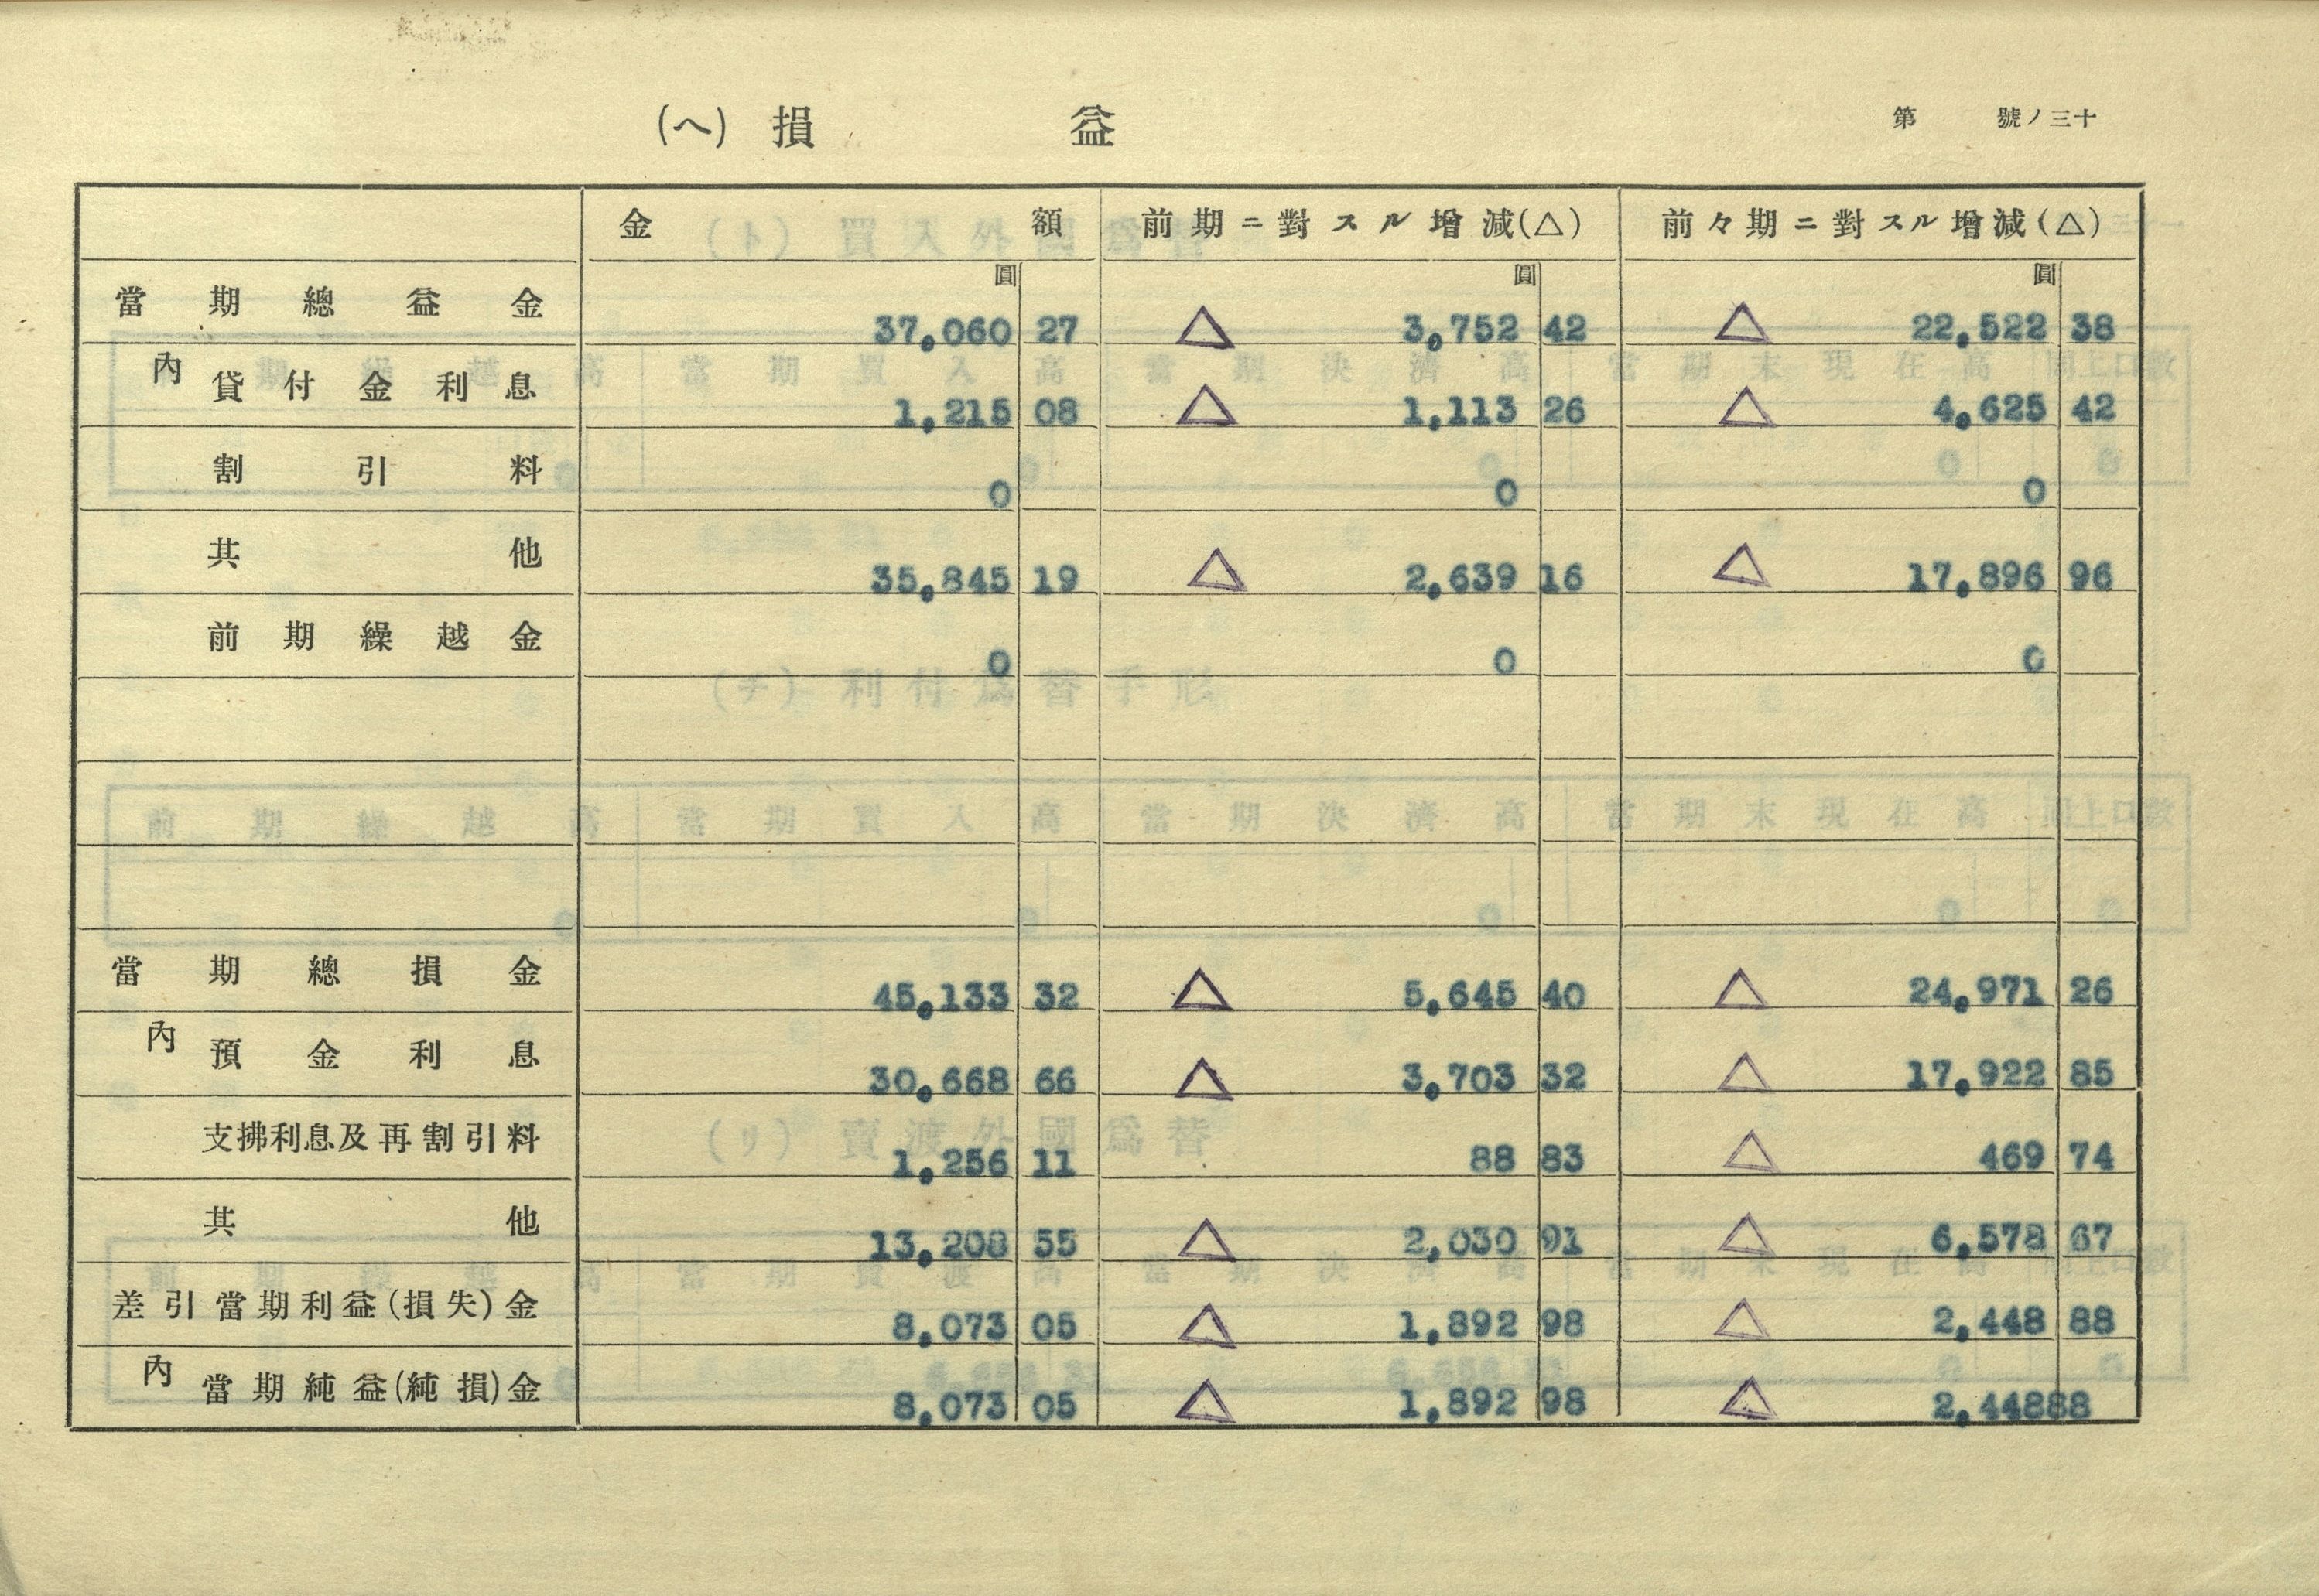 (ヘ) 損益
第 號ノ三十
金額 前期ニ對スル增減(△) 前々期ニ對スル增減(△)
圓 圓 圓
當期總益金 37,060 27 △ 3,752 42 △ 22,522 38
內 貸付金利息 1,215 08 △ 1,113 26 △ 4,625 42
割引料 0 0 0
其他 35,845 19 △ 2,639 16 △ 17,896 96
前期繰越金 0 0 0
當期總損金 45,133 32 △ 5,645 40 △ 24,971 26
內 預金利息 30,668 66 △ 3,703 32 △ 17,922 85
支拂利息及再割引料 1,256 11 88 83 △ 469 74
其他 13,208 55 △ 2,030 91 △ 6,578 67
差引當期利益(損失)金 8,073 05 △ 1,892 98 △ 2,448 88
內 當期純益(純損)金 8,073 05 △ 1,892 98 △ 2,44888